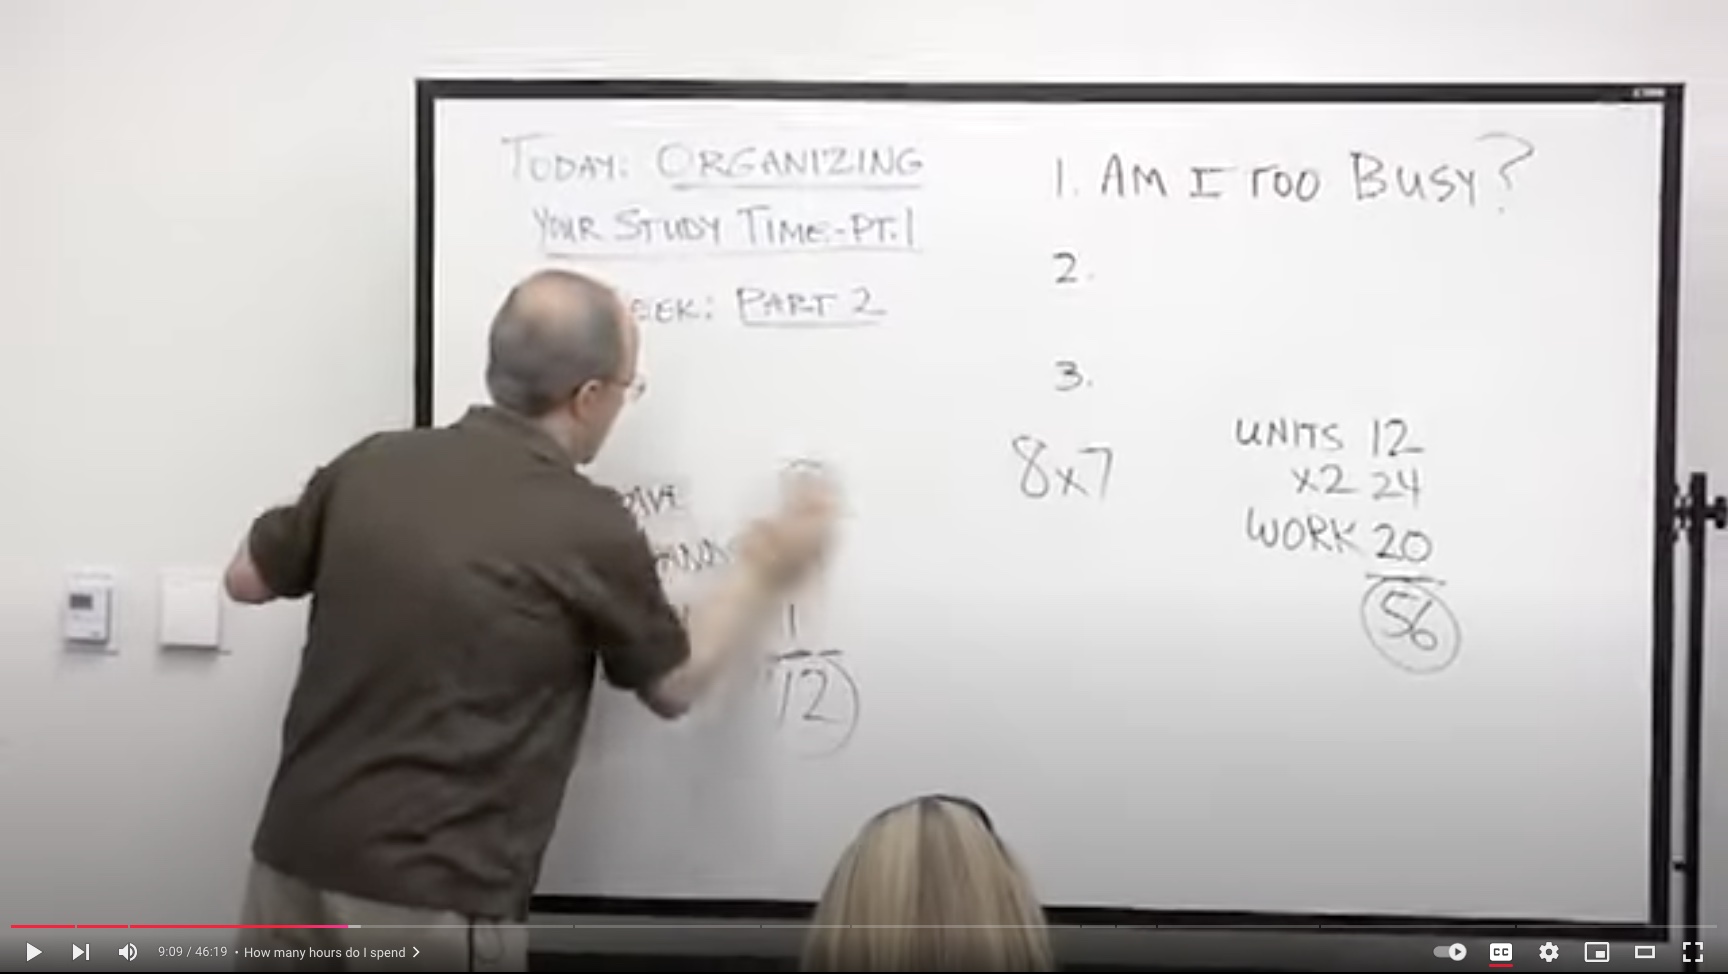 TODAY: ORGANIZING
YOUR STUDY TIME-PT.1
EEK: PART 2
1
12
1. AM I TOO BUSY?
2.
3.
8x7
UNITS 12
x2 24
WORK 20
56
9:09 / 46:19 • How many hours do I spend >
CC